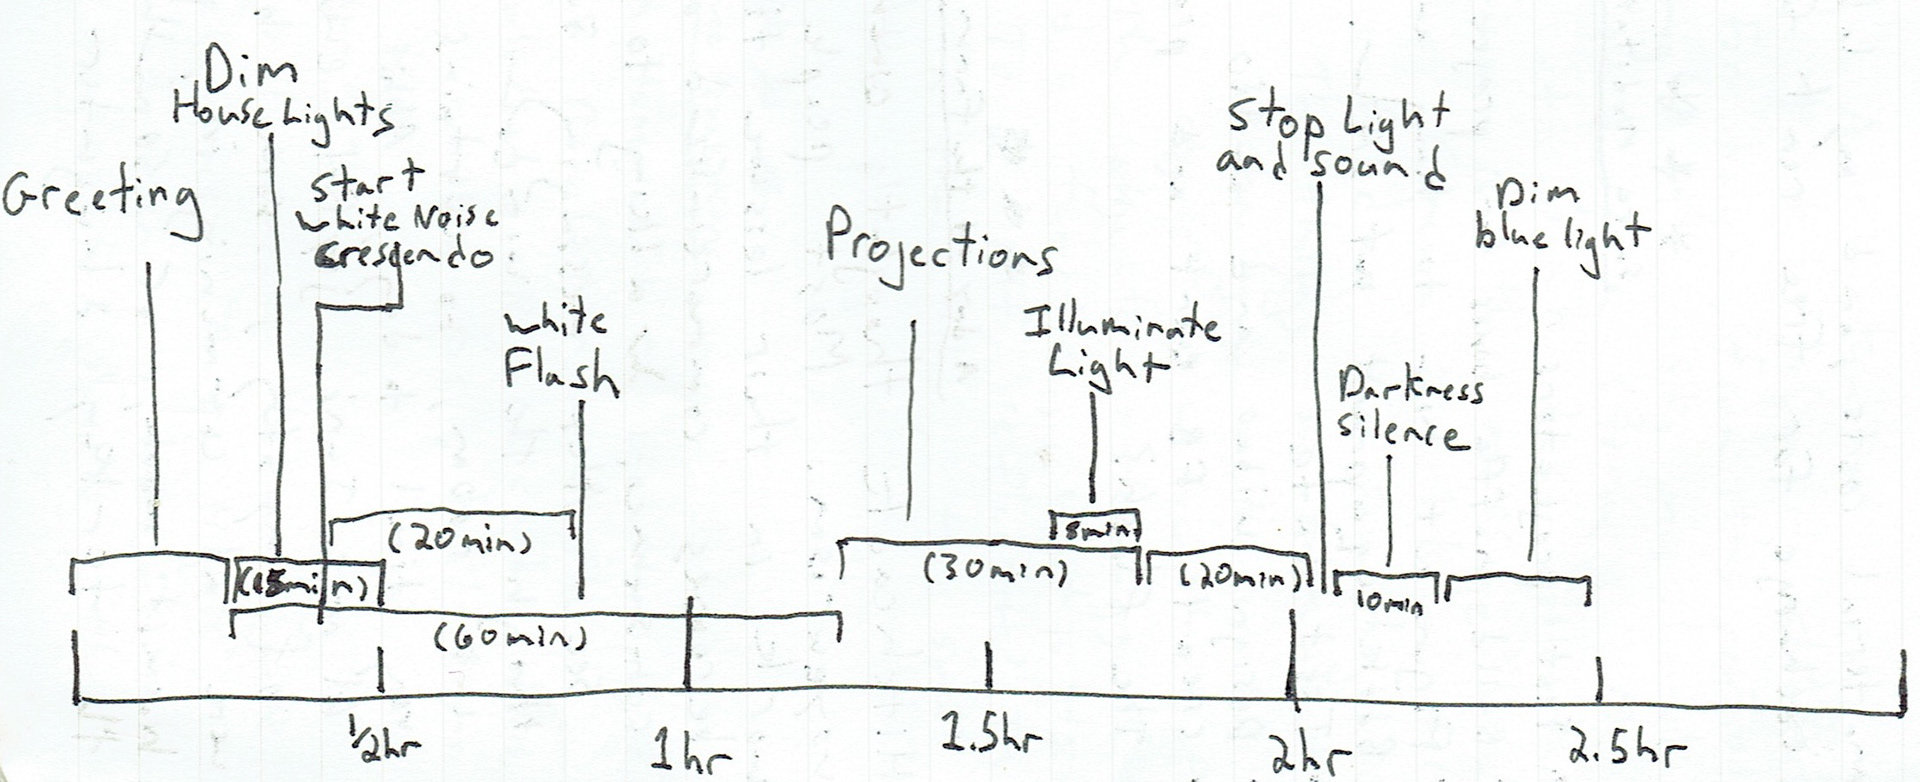 Dim
House Lights
Greeting
start
white Noise
Crescendo
white
Flash
Projections
Illuminate
Light
Stop Light
and sound
Dim
blue light
Darkness
silence
(20min)
(15min)
(60min)
8min
(30min)
(20min)
10min
1/2hr
1hr
1.5hr
2hr
2.5hr